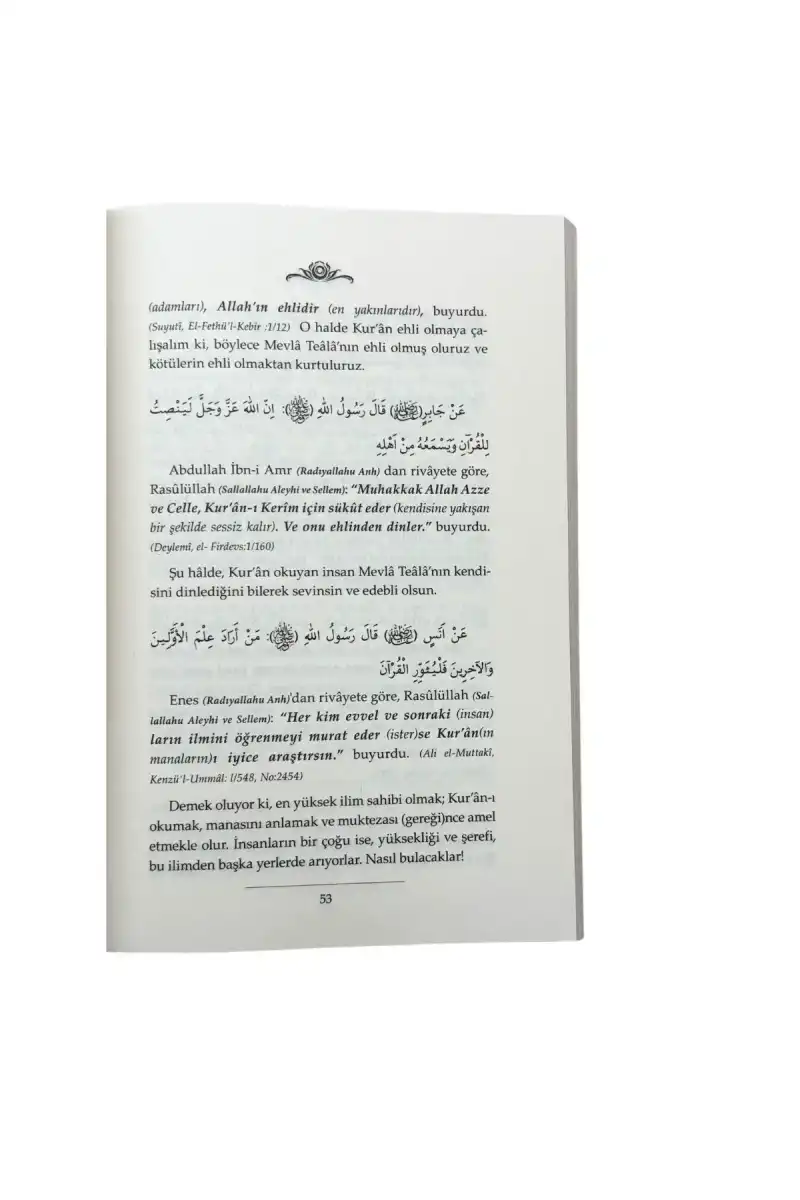 (adamları), Allah'ın ehlidir (en yakınlarıdır), buyurdu.
(Suyutî, El-Fethü'l-Kebîr :1/12) O halde Kur'ân ehli olmaya ça-
lışalım ki, böylece Mevlâ Teâlâ'nın ehli olmuş oluruz ve
kötülerin ehli olmaktan kurtuluruz.
عَنْ جَابِرٍ (ﷺ) قَالَ رَسُولُ اللهِ (ﷺ): إِنَّ اللهَ عَزَّ وَجَلَّ لَيَنْصِتُ
لِلْقُرْآنِ وَيَسْمَعُهُ مِنْ اَهْلِهِ
Abdullah İbn-i Amr (Radıyallahu Anh) dan rivâyete göre,
Rasûlüllah (Sallallahu Aleyhi ve Sellem): "Muhakkak Allah Azze
ve Celle, Kur'ân-ı Kerîm için sükût eder (kendisine yakışan
bir şekilde sessiz kalır). Ve onu ehlinden dinler." buyurdu.
(Deylemî, el- Firdevs:1/160)
Şu hâlde, Kur'ân okuyan insan Mevlâ Teâlâ'nın kendi-
sini dinlediğini bilerek sevinsin ve edebli olsun.
عَنْ اَنَسٍ (ﷺ) قَالَ رَسُولُ اللهِ (ﷺ): مَنْ أَرَادَ عِلْمَ الْأَوَّلِينَ
وَالْآخِرِينَ فَلْيُثَوِّرِ الْقُرْآنَ
Enes (Radıyallahu Anh)'dan rivâyete göre, Rasûlüllah (Sal-
lallahu Aleyhi ve Sellem): "Her kim evvel ve sonraki (insan)
ların ilmini öğrenmeyi murat eder (ister)se Kur'ân(ın
manaların)ı iyice araştırsın." buyurdu. (Ali el-Muttakî,
Kenzü'l-Ummâl: l/548, No:2454)
Demek oluyor ki, en yüksek ilim sahibi olmak; Kur'ân-ı
okumak, manasını anlamak ve muktezası (gereği)nce amel
etmekle olur. İnsanların bir çoğu ise, yüksekliği ve şerefi,
bu ilimden başka yerlerde arıyorlar. Nasıl bulacaklar!
53